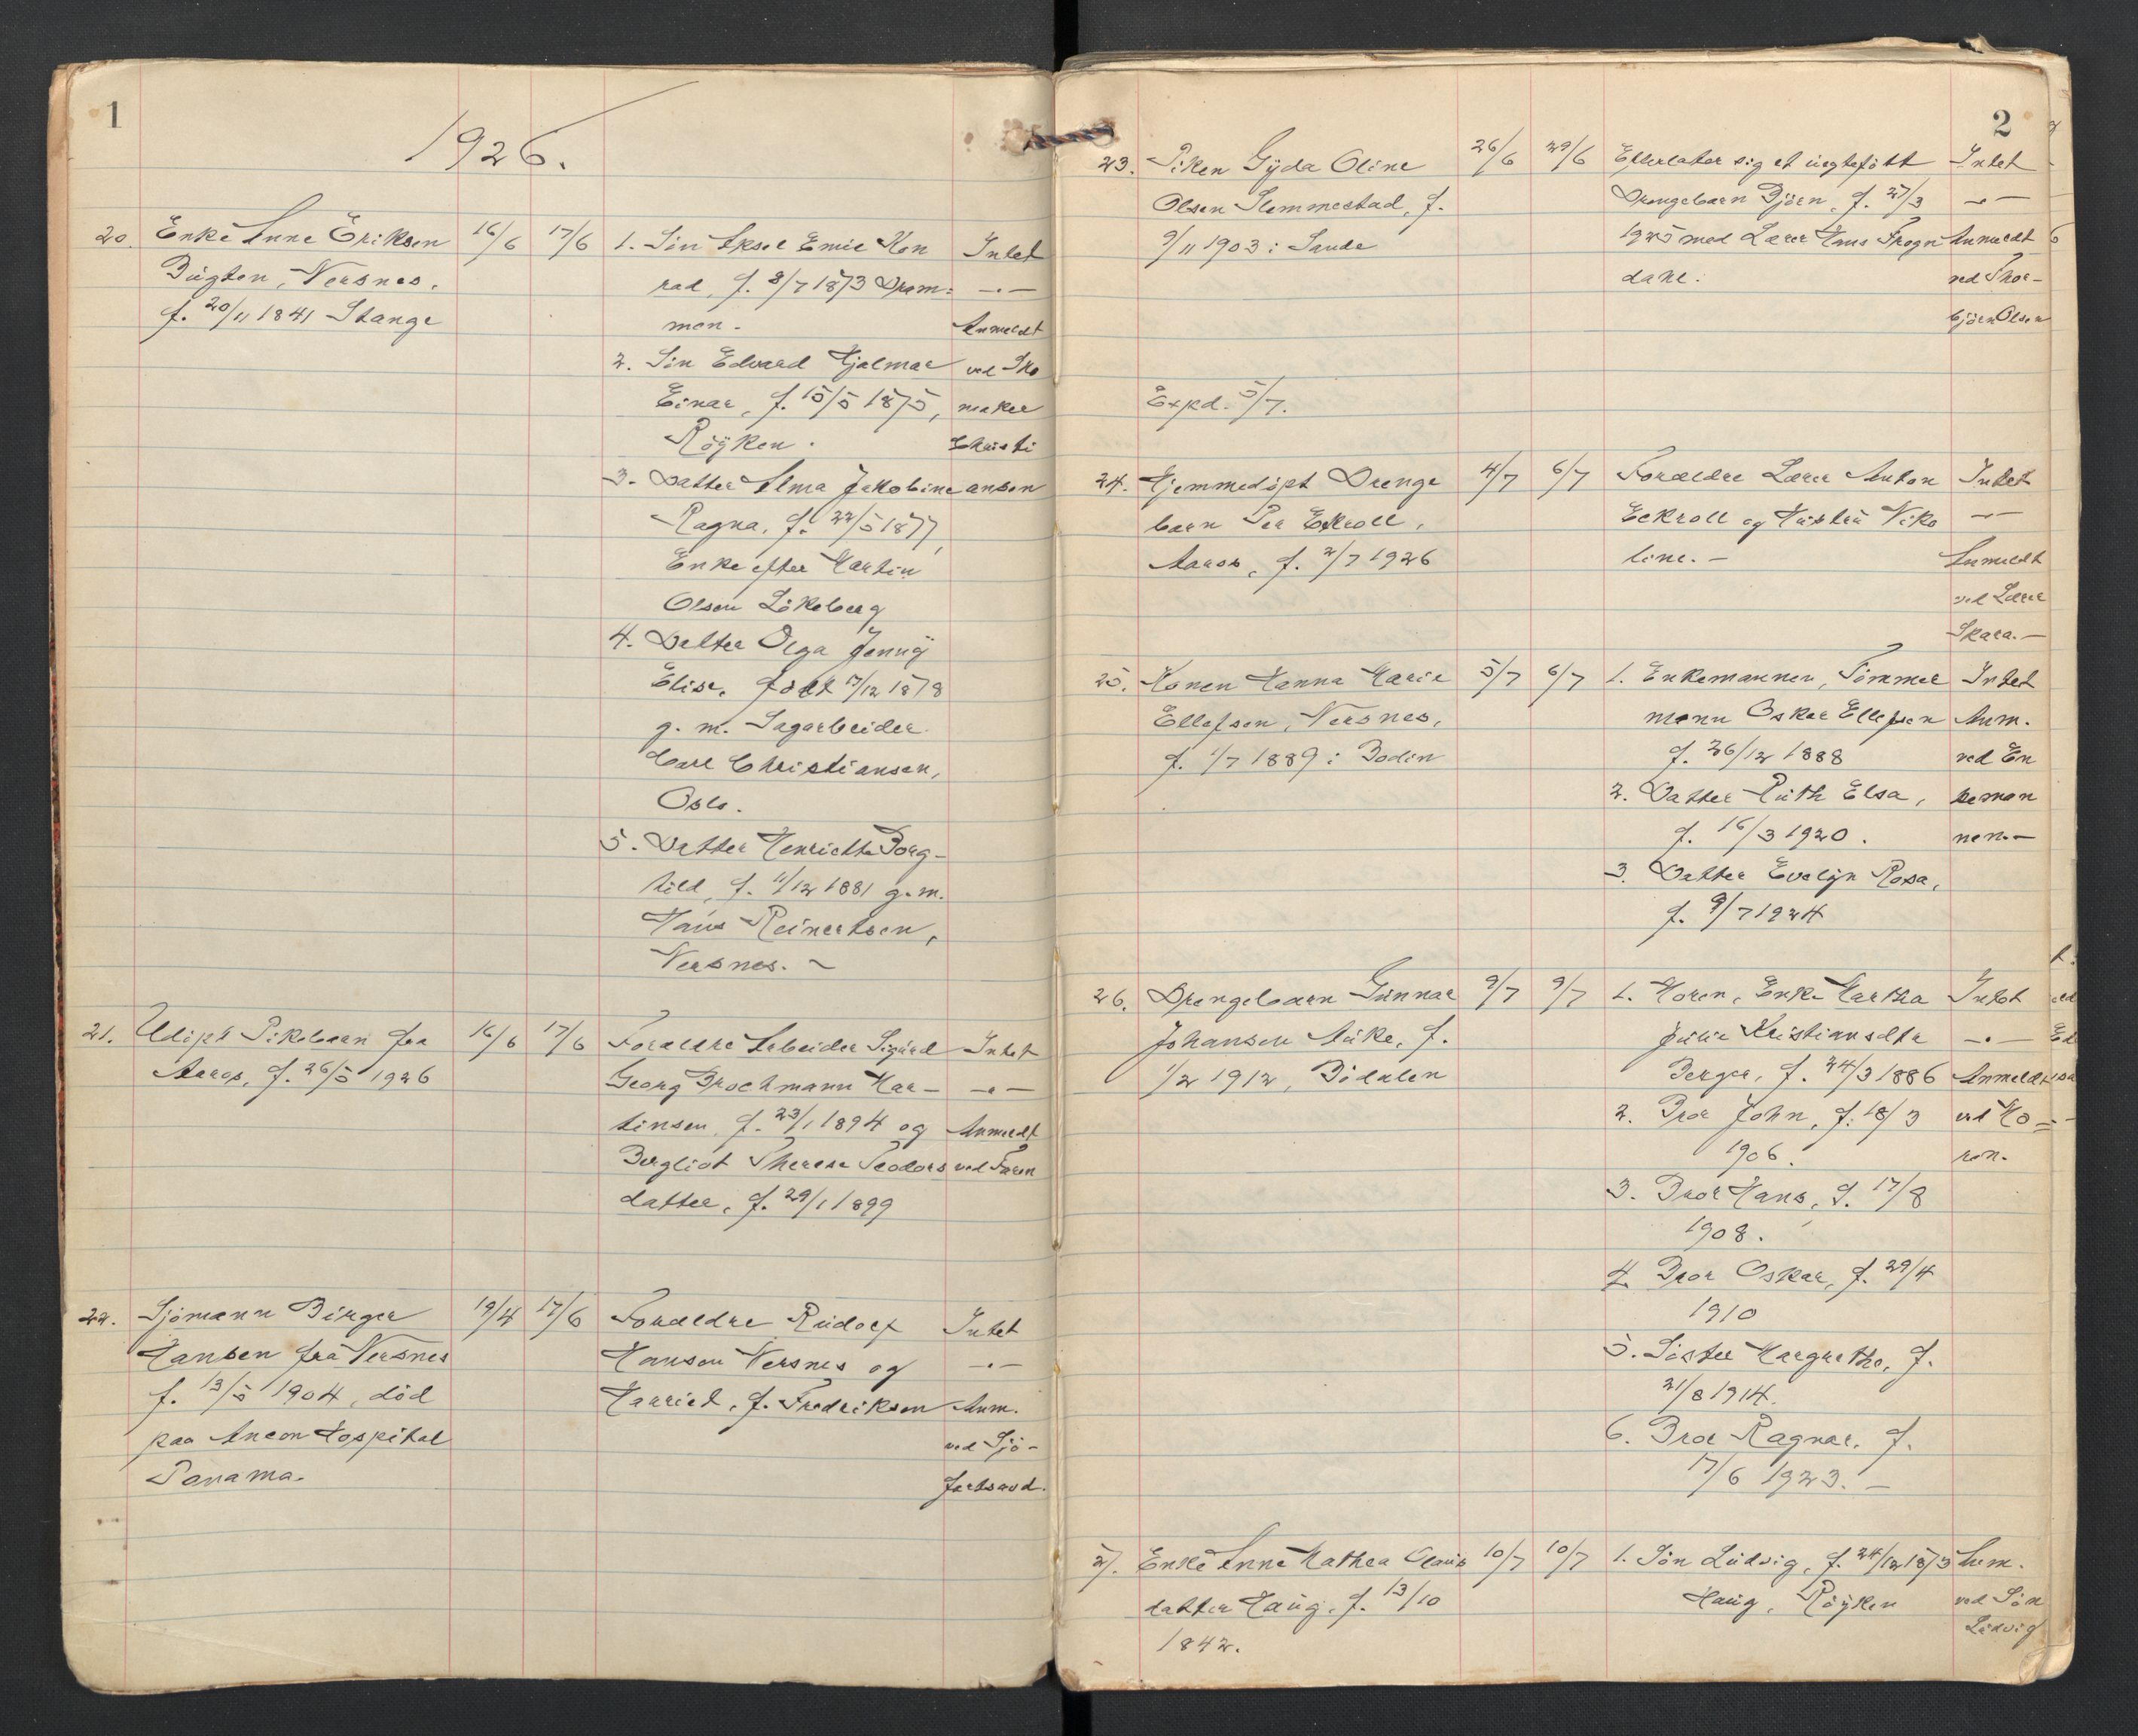 1
1926.
20. Enke Anna Eriksen 16/6 17/6 1. Sön Aksel Emil Kon Intet
Bugten, Nersnes. rad, f. 8/7 1873 Dram= —„—
f. 20/11 1841 Stange men. Anmeldt
2. Sön Edvard Hjalmar ved Sko
Einar, f. 15/5 1875, maker
Röyken. Christi
3. Datter Alma Jakobine ansen
Ragna, f. 22/5 1877,
Enke efter Martin
Olsen Lökeberg
4. Datter Olga Jenny
Elise, född 17/12 1878
g. m. Sagarbeider
Carl Christiansen,
Oslo.
5. Datter Henriette Borg-
hild, f. 11/12 1881 g. m.
Hans Reinertsen,
Nersnes. —
21. Udöpt Pikebarn fra 16/6 17/6 Foraeldre Arbeider Sigurd Intet
Aaros, f. 26/5 1926 Georg Brochmann Mar- —„—
tinsen f. 23/1 1894 og Anmeldt
Bergliot Therese Teodors ved Faren
datter, f. 29/1 1899
22. Sjömann Birger 19/4 17/6 Foraeldre Rudolf Intet
Hansen fra Nersnes Hansen Nersnes og —„—
f. 13/5 1904, död Harriet, f. Fredriksen Anm.
paa Ancon Hospital ved Sjö-
Panama. fartsavd.
2
23. Piken Gyda Oline 26/6 29/6 Efterlater sig et uegtefött Intet
Olsen Slemmestad, f. Drengebarn Björn, f. 27/3 —„—
9/11 1903 i Sande 1925 med Lærer Hans Frogn Anmeldt
dahl. ved Thor-
björn Olsen
Expd. 5/7.
24. Hjemmedöpt Drenge 4/7 6/7 Foraeldre Lærer Anton Intet
barn Per Eckroll, Eckroll og Hustru Niko —„—
Aaros, f. 2/7 1926 line. — Anmeldt
ved Lærer
Skara. —
25. Konen Hanna Marie 5/7 6/7 1. Enkemannen, Tömmer Intet
Ellefsen, Nersnes, mann Oskar Ellefsen Anm.
f. 1/7 1889 i Bodin f. 26/12 1888 ved En
2. Datter Ruth Elsa, keman
f. 16/3 1920. nen. —
3. Datter Evelyn Rosa,
f. 9/7 1924
26. Drengebarn Gunnar 9/7 9/7 1. Moren, Enke Martha Intet
Johansen Auke, f. Julie Kristiansdtr —„—
1/2 1912, Bödalen Berger, f. 24/3 1886 Anmeldt
2. Bror John, f. 18/3 ved Mo=
1906. ren.
3. Bror Hans, f. 17/8
1908.
4. Bror Oskar, f. 29/4
1910
5. Söster Margrethe, f.
21/8 1914.
6. Bror Ragnar, f.
17/6 1923. —
27. Enke Anne Mathea Claus 10/7 10/7 1. Sön Ludvig, f. 24/12 1873 Anm.
datter Haug, f. 13/10 Haug, Röyken ved Sön
1842. Ludvig